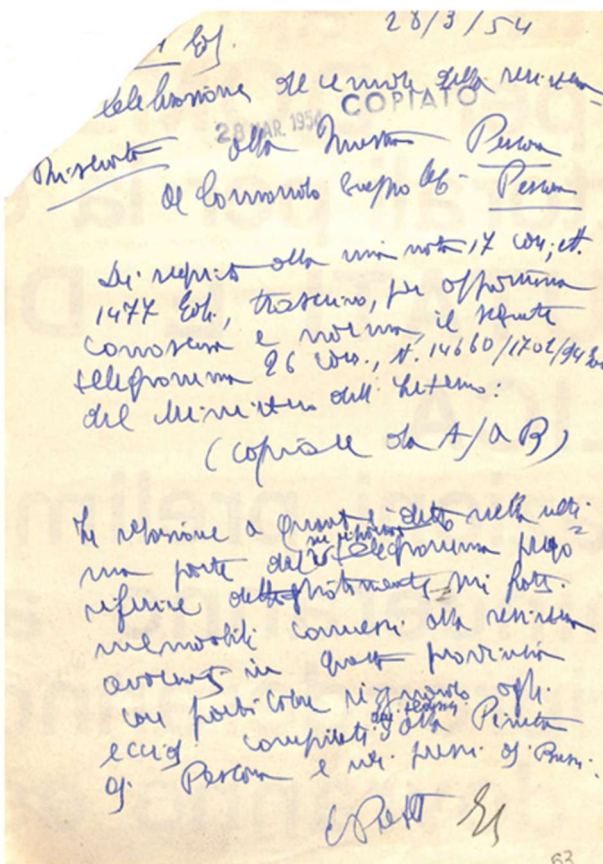 28/3/54
Gab.
Celebrazione decennale della resistenza
COPIATO
28 MAR. 1954
Riservata alla Questura Pescara
al Comando Gruppo CC - Pescara
Di seguito alla mia nota 17 corr., n.
1477 Gab., trascrivo, per opportuna
conoscenza e norma, il seguente
telegramma 26 corr., n. 14660/1702/
del Ministero dell'Interno:
(copiare da A) a B)
In relazione a quanto detto nella ulti-
ma parte del telegramma prego
riferire sui fatti
memorabili connessi alla resistenza
avvenuti in questa provincia
con particolare riguardo agli
eccidi compiuti alla Pineta
di Pescara e nei pressi di Bussi.
63